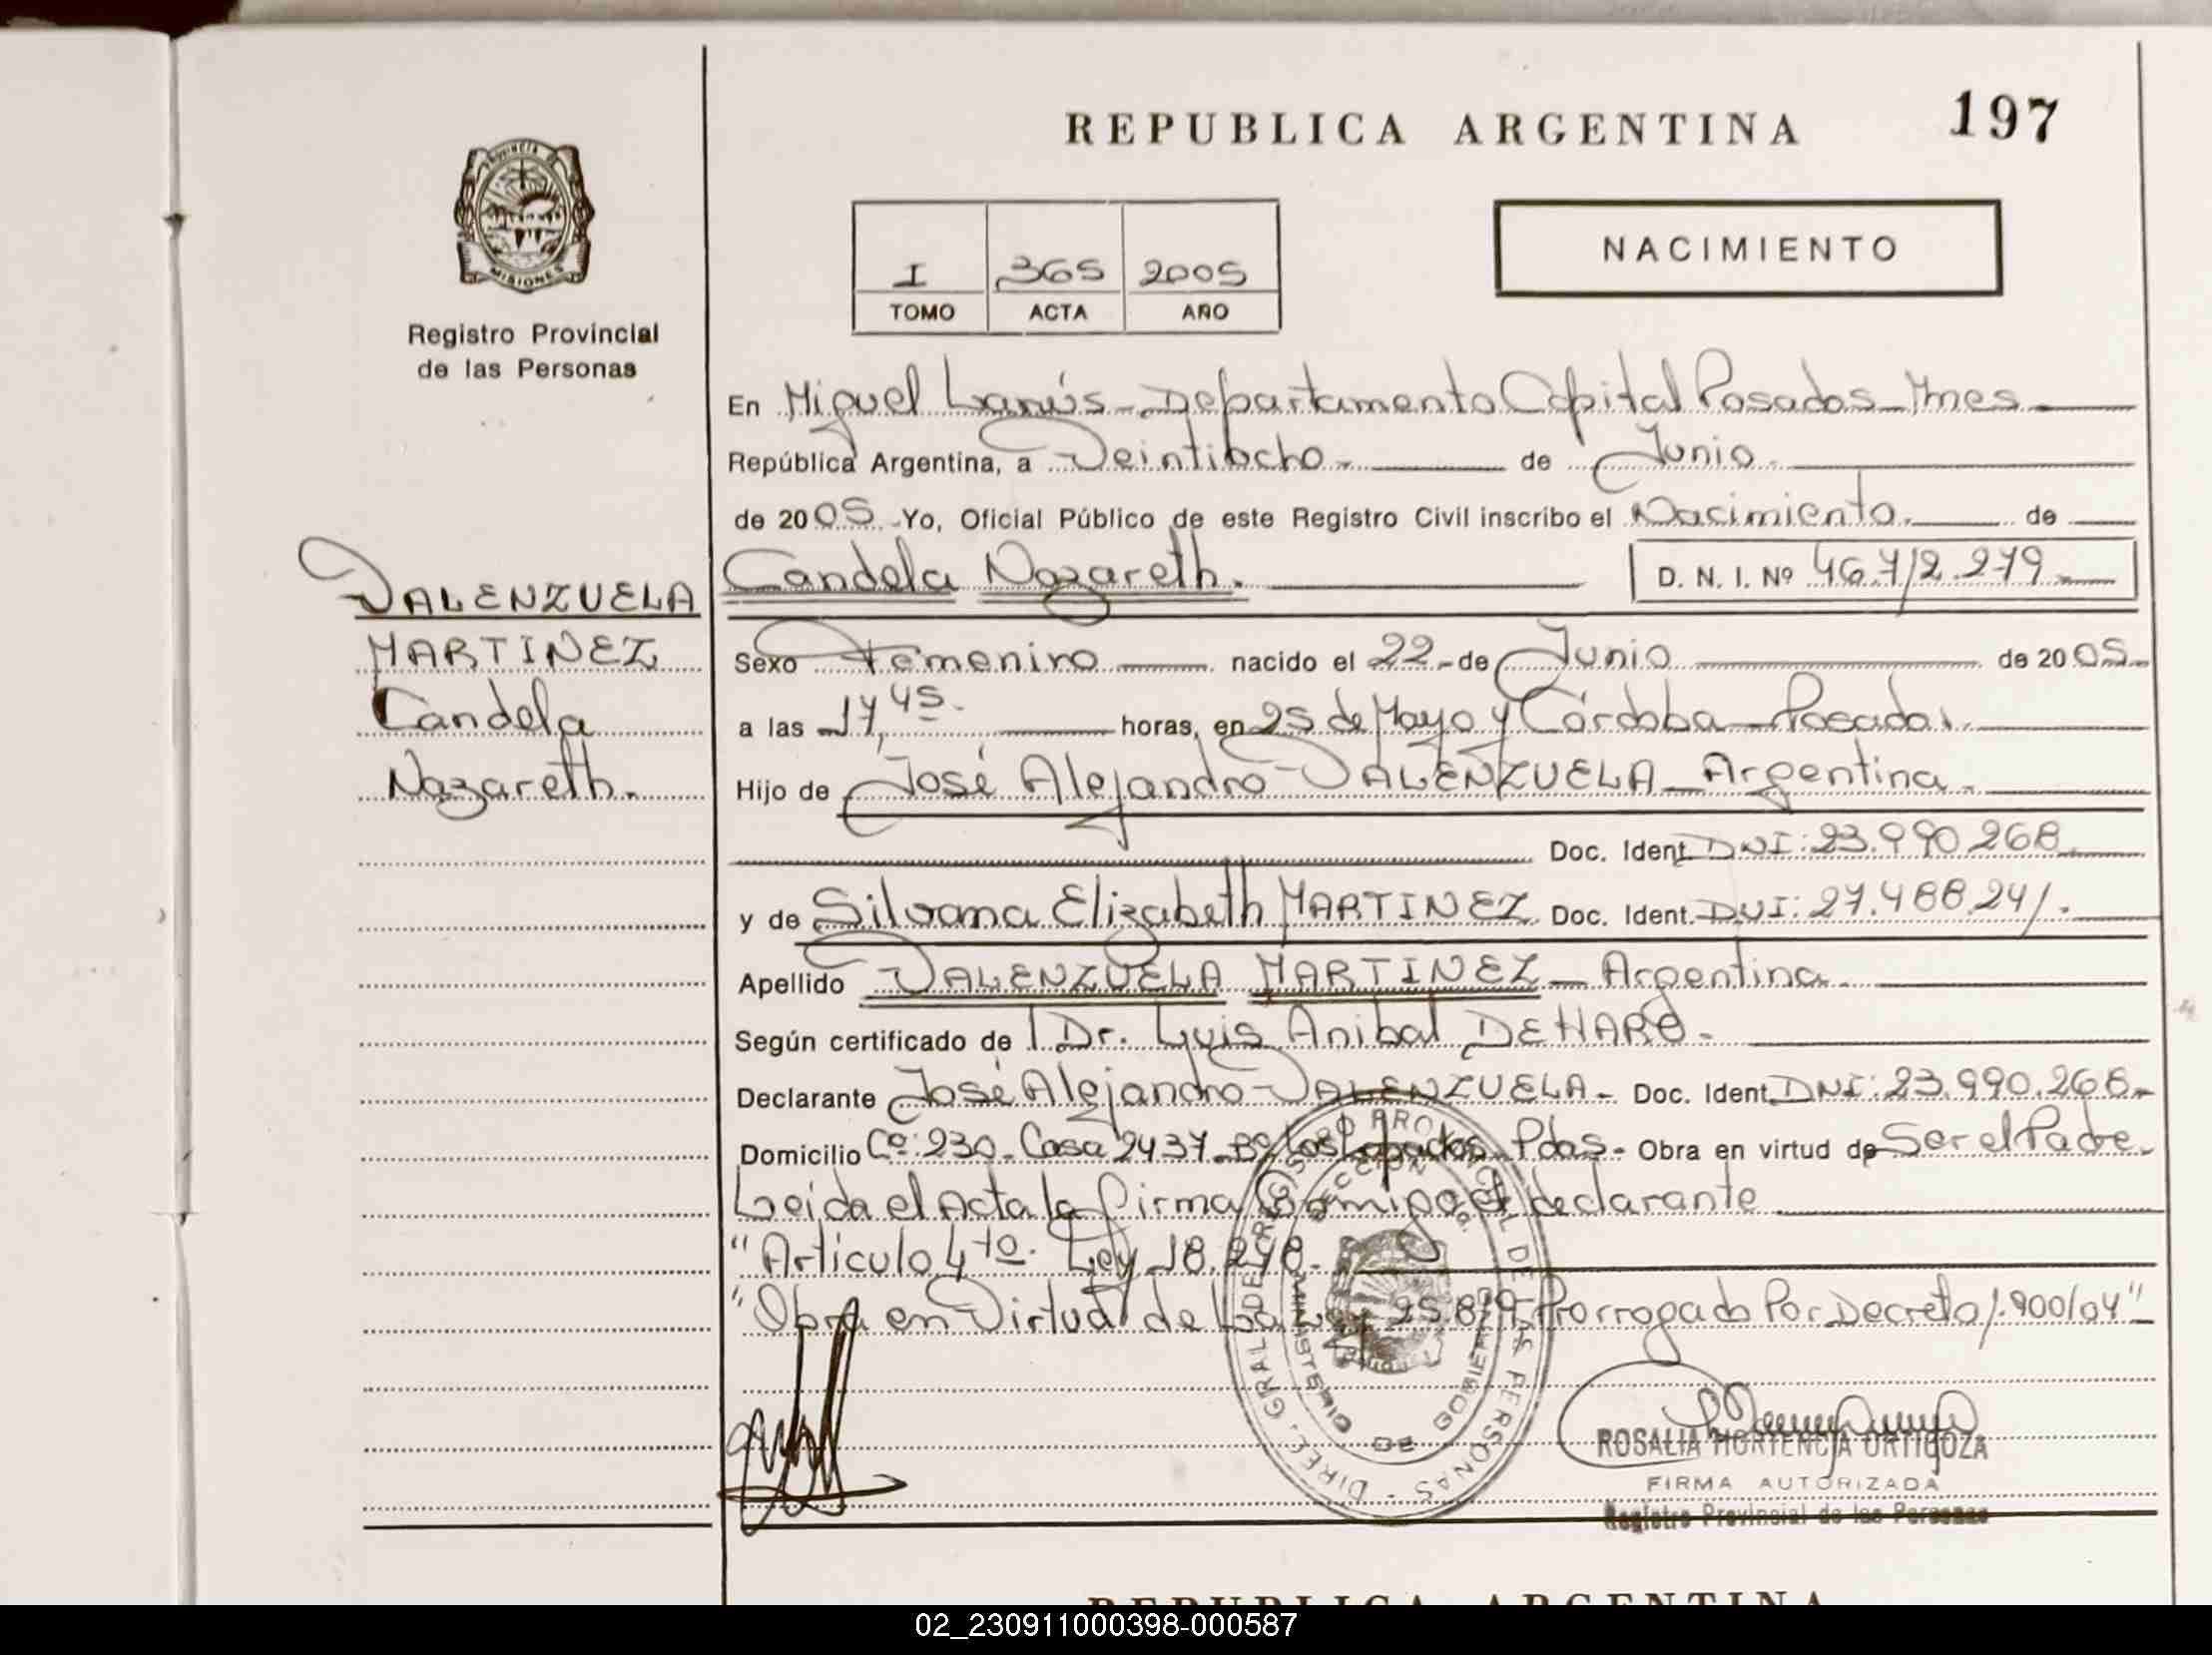 REPUBLICA ARGENTINA 197
PROVINCIA DE
MISIONES
Registro Provincial
de las Personas
I 365 2005
TOMO ACTA AÑO
NACIMIENTO
En Miguel Lanús - Departamento Capital Posadas - Mnes -
República Argentina, a Veintiocho - de Junio.
de 2005 Yo, Oficial Público de este Registro Civil inscribo el Nacimiento. de
Candela Nazareth. D. N. I. Nº 46.712.279
VALENZUELA
MARTINEZ
Candela
Nazareth.
Sexo Femenino nacido el 22 - de Junio de 2005 -
a las 17,45 - horas, en 25 de Mayo y Córdoba - Posadas.
Hijo de José Alejandro VALENZUELA - Argentina.
Doc. Ident. DNI: 23.990.268
y de Silvana Elizabeth MARTINEZ Doc. Ident. DNI: 27.488.241.
Apellido VALENZUELA MARTINEZ - Argentina.
Según certificado de Dr. Luis Anibal DE HARO.
Declarante José Alejandro VALENZUELA - Doc. Ident. DNI: 23.990.268 -
Domicilio Cº: 230 - Casa 2437 - Bº Los Lapachos Pdas - Obra en virtud de Ser el Padre.
Leida el Acta la firma Conmigo el declarante
"Articulo 4to. Ley 18.248.
"Obra en Virtud de La Ley 25.819 Prorrogado Por Decreto 1.900/04"
DIREC. GRAL DE REGISTRO PROVINCIAL DE LAS PERSONAS
MINISTERIO DE GOBIERNO
ROSALIA HORTENCIA ORTIGOZA
FIRMA AUTORIZADA
Registro Provincial de las Personas
REPUBLICA ARGENTINA
02_230911000398-000587